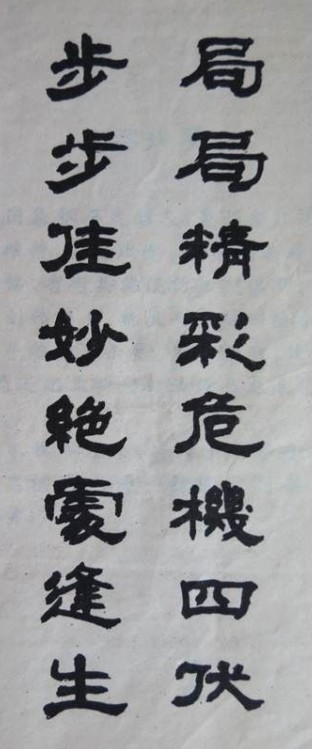 局局精彩危機四伏
步步佳妙絶處逢生